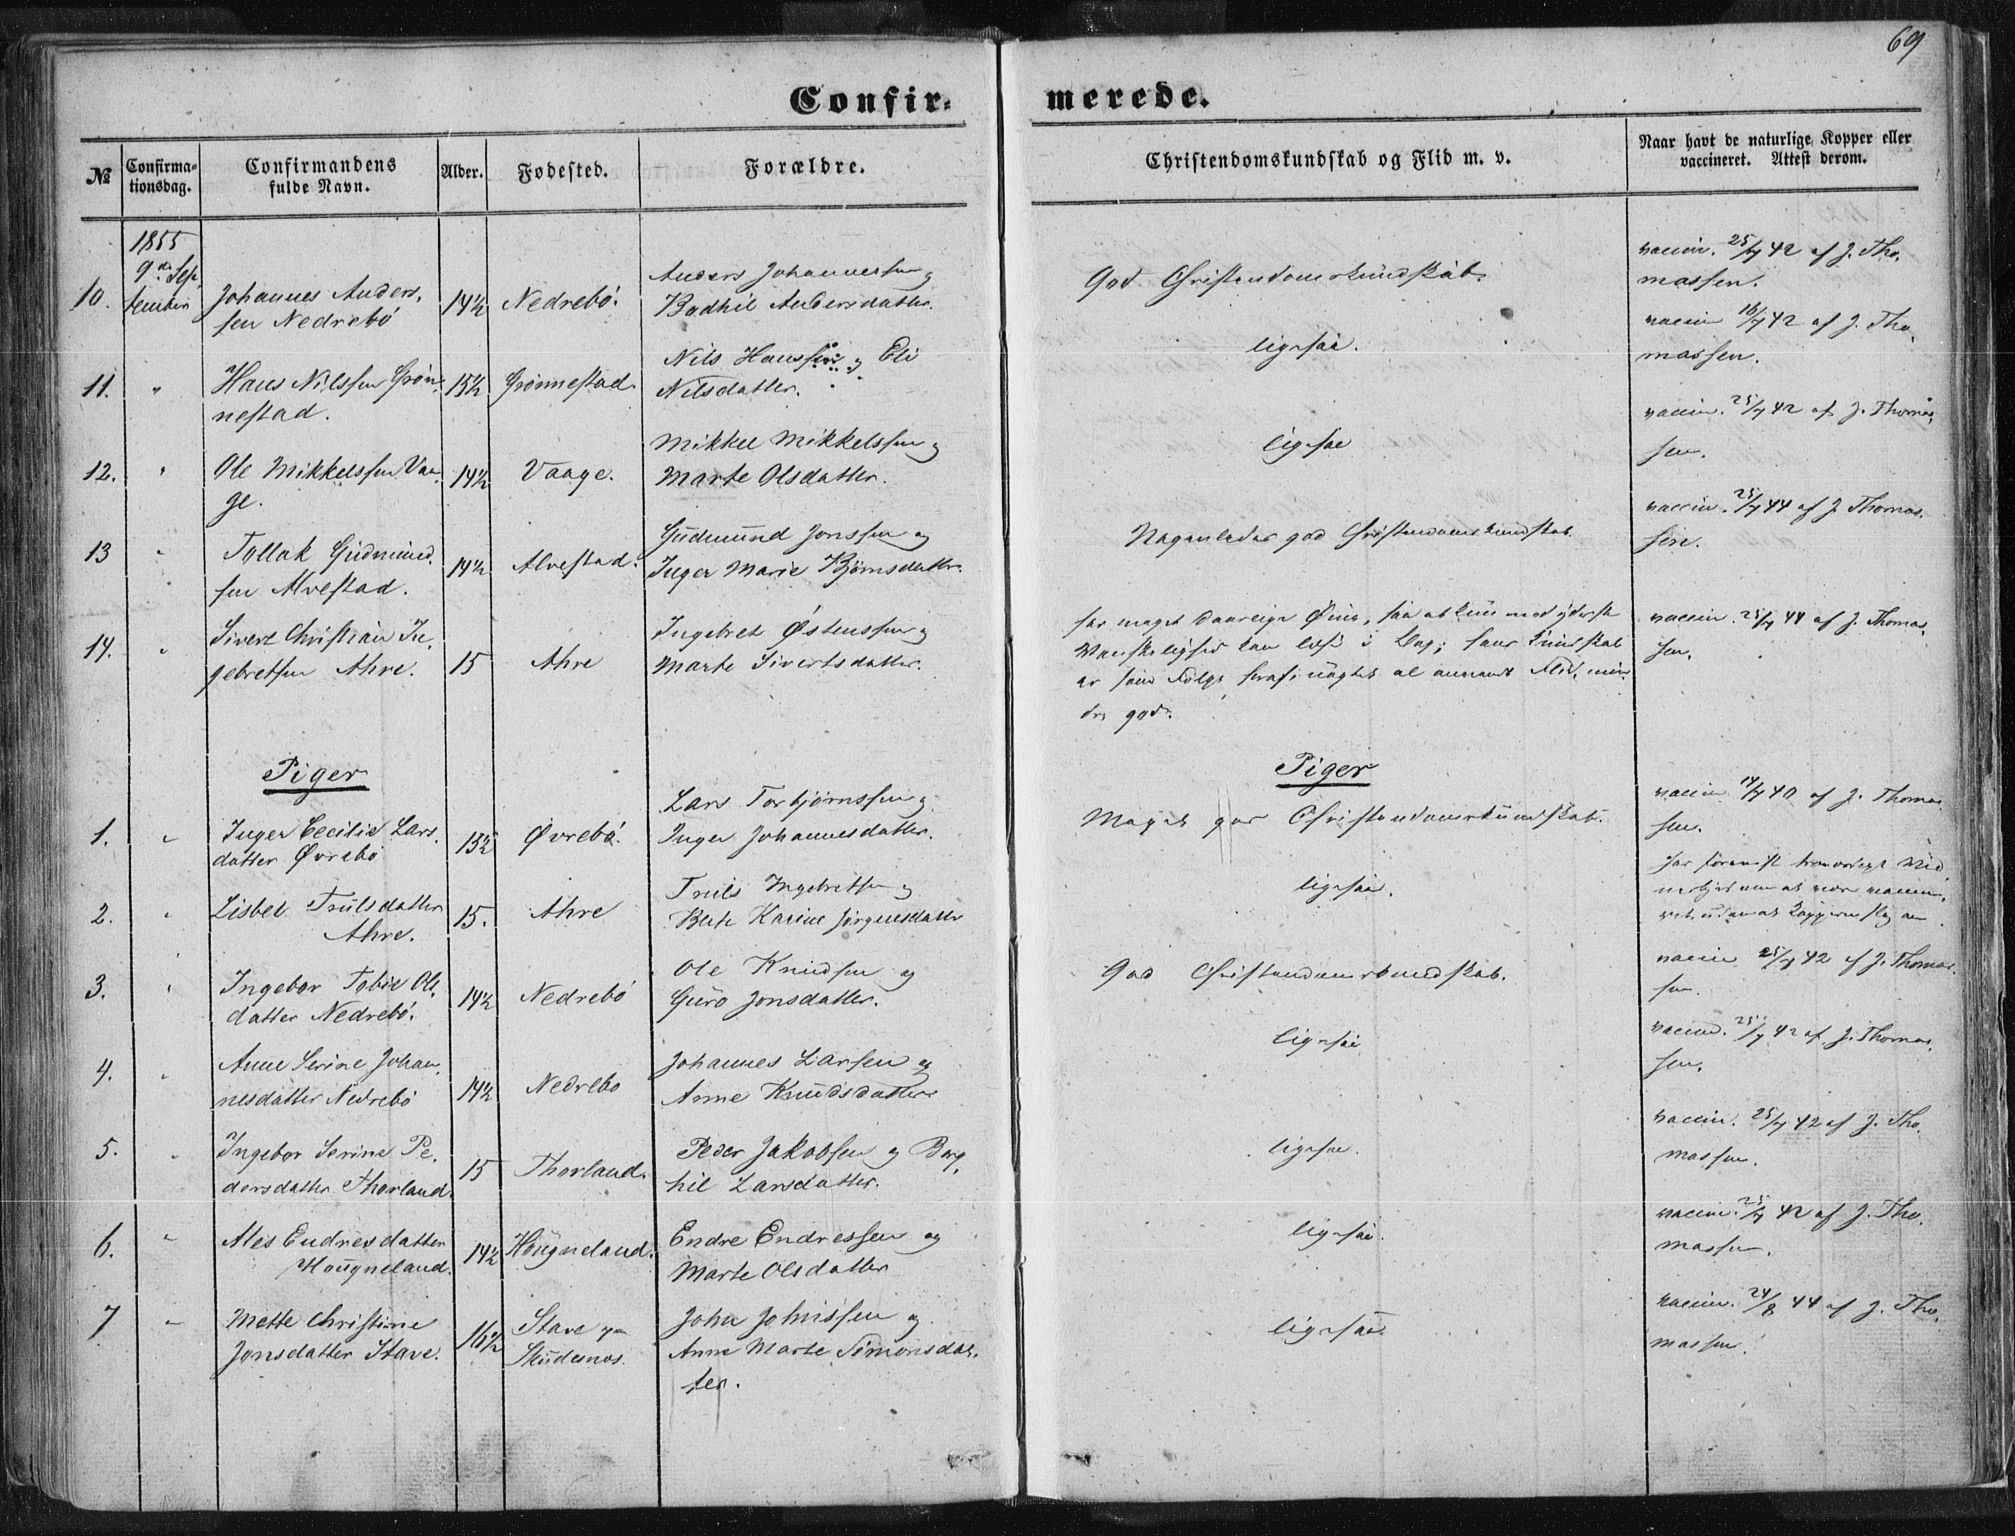 69
Confir-
merede.
№
Confirma-
tionsdag.
Confirmandens
fulde Navn.
Alder.
Fødested.
Forældre.
Christendomskundskab og Flid m. v.
Naar havt de naturlige Kopper eller
vaccineret. Attest derom.
1855
9de Sep-
tember
10.
Johannes Anders-
sen Nedrebö
14½
Nedrebö.
Anders Johannessen og
Bodhil Andersdatter.
God Christendomskundskab.
vaccin. 25/7 42 af J. Tho-
massen.
11.
"
Hans Nilssen Grön-
nestad.
15½
Grönnestad.
Nils Hanssen og Eli
Nilsdatter.
ligesaa.
vaccin 16/7 42 af J. Tho-
massen.
12.
"
Ole Mikkelssen Vaa-
ge.
14½
Vaage.
Mikkel Mikkelssen og
Marte Olsdatter.
ligesaa
vaccin. 25/7 42 af J. Thomas-
sen.
13
"
Tollak Gudmund-
sen Alvestad.
14½
Alvestad.
Gudmund Jonssen og
Inger Marie Bjørnsdatter.
Nogenledes god Christendomskundskab.
vaccin. 25/7 44 af J. Thomas-
sen.
14.
"
Sivert Christian In-
gebretsen Ahre.
15
Ahre
Ingebret Östenssen og
Marte Sivertsdatter.
har meget daarlige Øine, saa at kun med yderste
Vanskelighed kan læse i Bog; hans Kundskab
er som Følge heraf, uagtet al anvendt Flid, min-
dre god.
vaccin. 25/7 44 af J. Thomas-
sen.
Piger
Piger
1.
"
Inger Cecilie Lars-
datter Øvrebö
15½
Øvrebö.
Lars Torbjørnssen og
Inger Johannesdatter.
Meget god Christendomskundskab.
vaccin 14/7 40 af J. Thomas-
sen.
2.
"
Lisbet Trulsdatter
Ahre.
15.
Ahre
Truls Ingebretsen og
Berte Karine Jörgensdatter
ligesaa.
har forevist troværdigt Vid-
nesbyrd om at være vaccine-
ret uden at Kopperne slog an
3.
"
Ingebor Tobie Ols-
datter Nedrebö.
14½
Nedrebö
Ole Knudsen og
Guro Jonsdatter.
God Christendomskundskab.
vaccin 25/7 42 af J. Thomas-
sen.
4.
"
Anne Serine Johan-
nesdatter Nedrebö
14½
Nedrebo
Johannes Larsen og
Anne Knudsdatter
ligesaa
vaccin. 25/7 42 af J. Thomas-
sen.
5.
"
Ingebor Serine Pe-
dersdatter Thorland.
15
Thorland.
Peder Jakobsen og Borg-
hil Larsdatter.
ligesaa.
vaccin. 25/7 42 af J. Tho-
massen.
6.
"
Ales Endresdatter
Hougneland.
14½
Hougneland.
Endre Endressen og
Marte Olsdatter
ligesaa.
vaccin. 25/7 42 af J. Tho-
massen.
7
"
Mette Christine
Jonsdatter Stave.
16½
Stave
Skudesnes.
John Johnssen og
Anne Marte Simonsdat-
ter.
ligesaa.
vaccin. 24/8 44 af J. Tho-
massen.